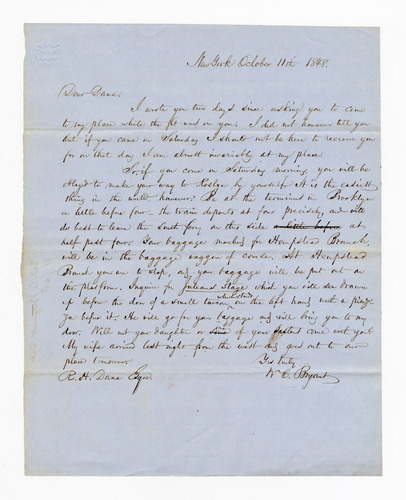 New York October 11th 1848.
Dear Dana.
I wrote you two days since asking you to come
to my place while the was on you. I did not however tell you
that if you came on Saturday I should not be here to receive you
for on that day I am almost invariably at my place.
So, if you come on Saturday morning you will be
obliged to make your way to Roslyn by yourself. It is the easiest
thing in the world however. Be at the terminus in Brooklyn
a little before four - the train departs at four precisely, and will
do best to leave the South ferry on this side a little before at
half past four. Your baggage marked for Hempstead Branch,
will be in the baggage waggon of course. At Hempstead
Branch you are to stop, and your baggage will be put out on
the platform. Inquire for stage which you will see drawn
up before the door of a small tavern, on the left hand with a piaz-
za before it. He will go for your baggage and will bring you to my
door. Will not your daughter or one of your sisters come with you?
My wife arrived last night from the west and goes out to our
place tomorrow
Yrs truly
R. H. Dana Esqre W. C. Bryant